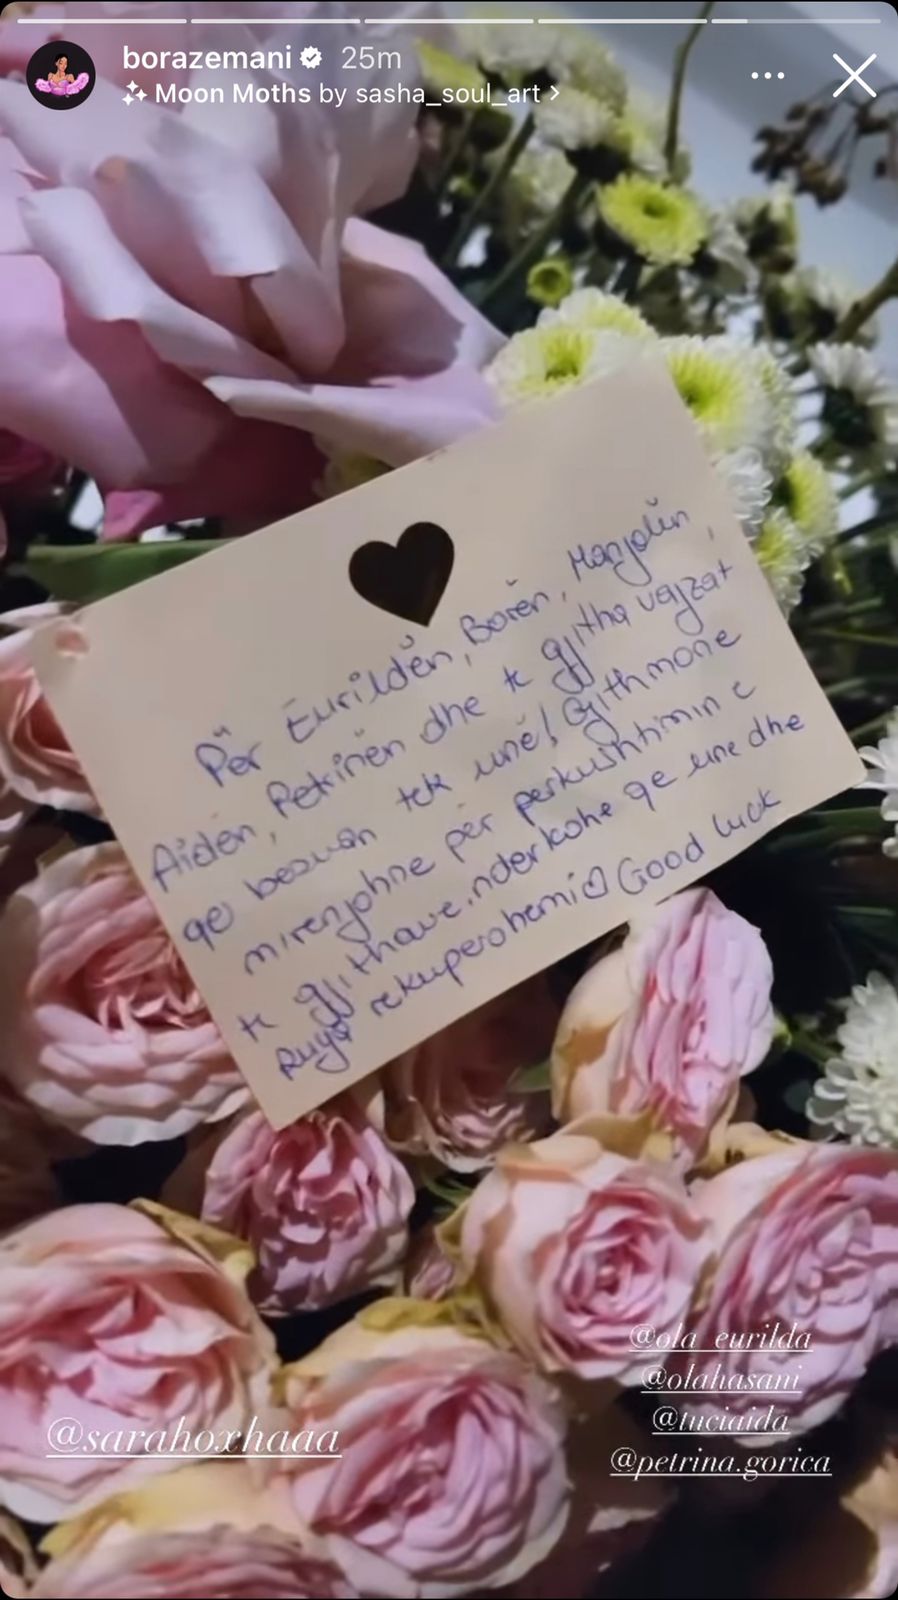 borazemani 25m
Moon Moths by sasha_soul_art >
Për Eurildën, Borën, Manjolën,
Aidën, Petrinën dhe te gjitha vajzat
qe besuan tek unë! Gjithmone
mirenjohne për perkushtimin e
te gjithave. nderkohe qe une dhe
rekuperohemi♡ Good luck
@ola_eurilda
@olahasani
@tuciaida
@petrina.gorica
@sarahoxhaaa